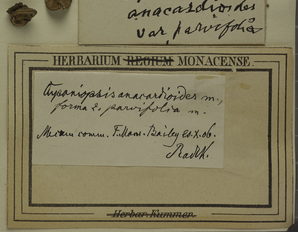 anacardioides
var parvifolia
HERBARIUM REGIUM MONACENSE.
Cupaniopsis anacardioides m.,
forma 2. parvifolia m.
Mecum comm. F. Mans. Bailey Ed. X. 06.
Radlk.
Herbar Kummer